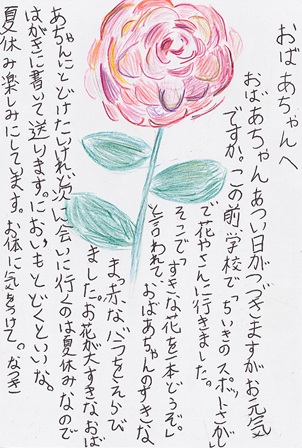 おばあちゃんへ
おばあちゃんあつい日がつづきますがお元気
ですか。この前、学校で「ちいきのスポットさがし」
で花やさんに行きました。
そこで「すきな花を一本どうぞ。」
と言われて、おばあちゃんのすきな、
まっ赤なバラをえらび
ました。お花が大すきなおば
あちゃんにとどけたいけれど、次に会いに行くのは夏休みなので
はがきに書いて送ります。においもとどくといいな。
夏休み楽しみにしています。お体に気をつけて。なつき